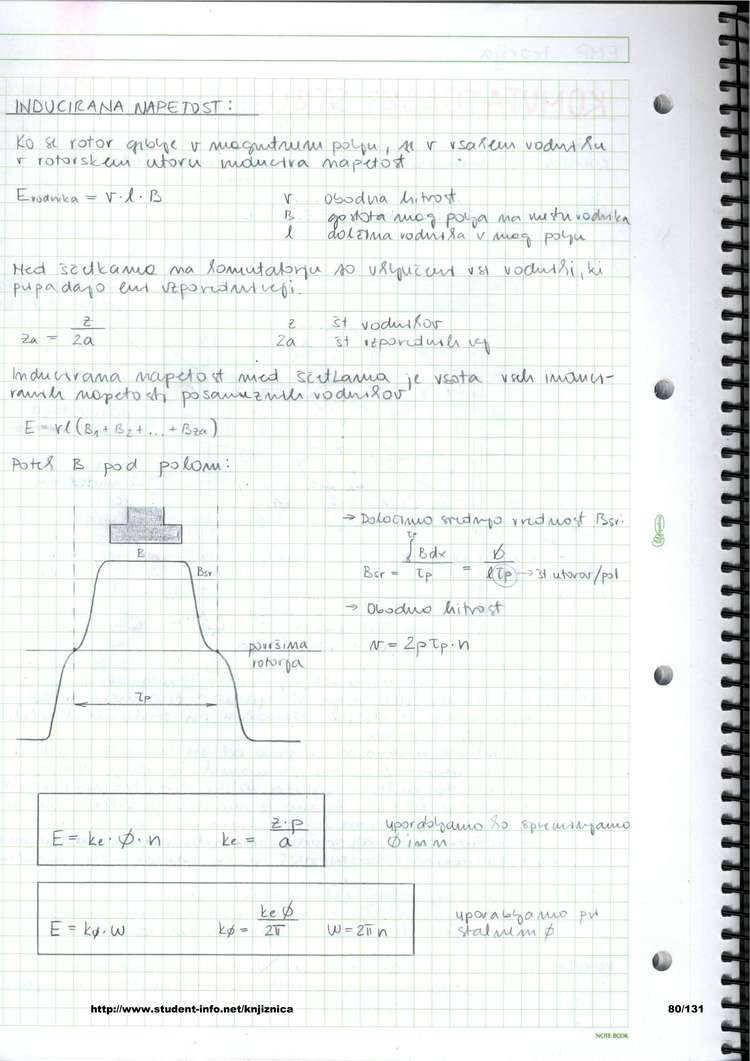 INDUCIRANA NAPETOST:
Ko se rotor giblje v magnetnem polju, se v vsakem vodniku
v rotorskem utoru inducira napetost
Evodnika = v · l · B
v obodna hitrost
B gostota mag polja na mestu vodnika
l dolžina vodnika v mag polju
Med ščetkama na komutatorju so vključeni vsi vodniki, ki
pripadajo eni vzporedni veji.
za = z / 2a
z št vodnikov
2a št vzporednih vej
Inducirana napetost med ščetkama je vsota vseh induci-
ranih napetosti posameznih vodnikov
E = vl (B1 + B2 + ... + Bza)
Potek B pod polom:
B
Bsr
površina
rotorja
τp
→ Določimo srednjo vrednost Bsr.
Bsr = ∫τp Bdx / τp = ϕ / lτp → št utorov/pol
→ Obodna hitrost
v = 2pτp · n
E = ke · ϕ · n ke = z·p / a
uporabljamo ko spreminjamo
ϕ in n
E = kϕ · ω kϕ = keϕ / 2π ω = 2πn
uporabljamo pri
stalnem ϕ
http://www.student-info.net/knjiznica 80/131
NOTE BOOK